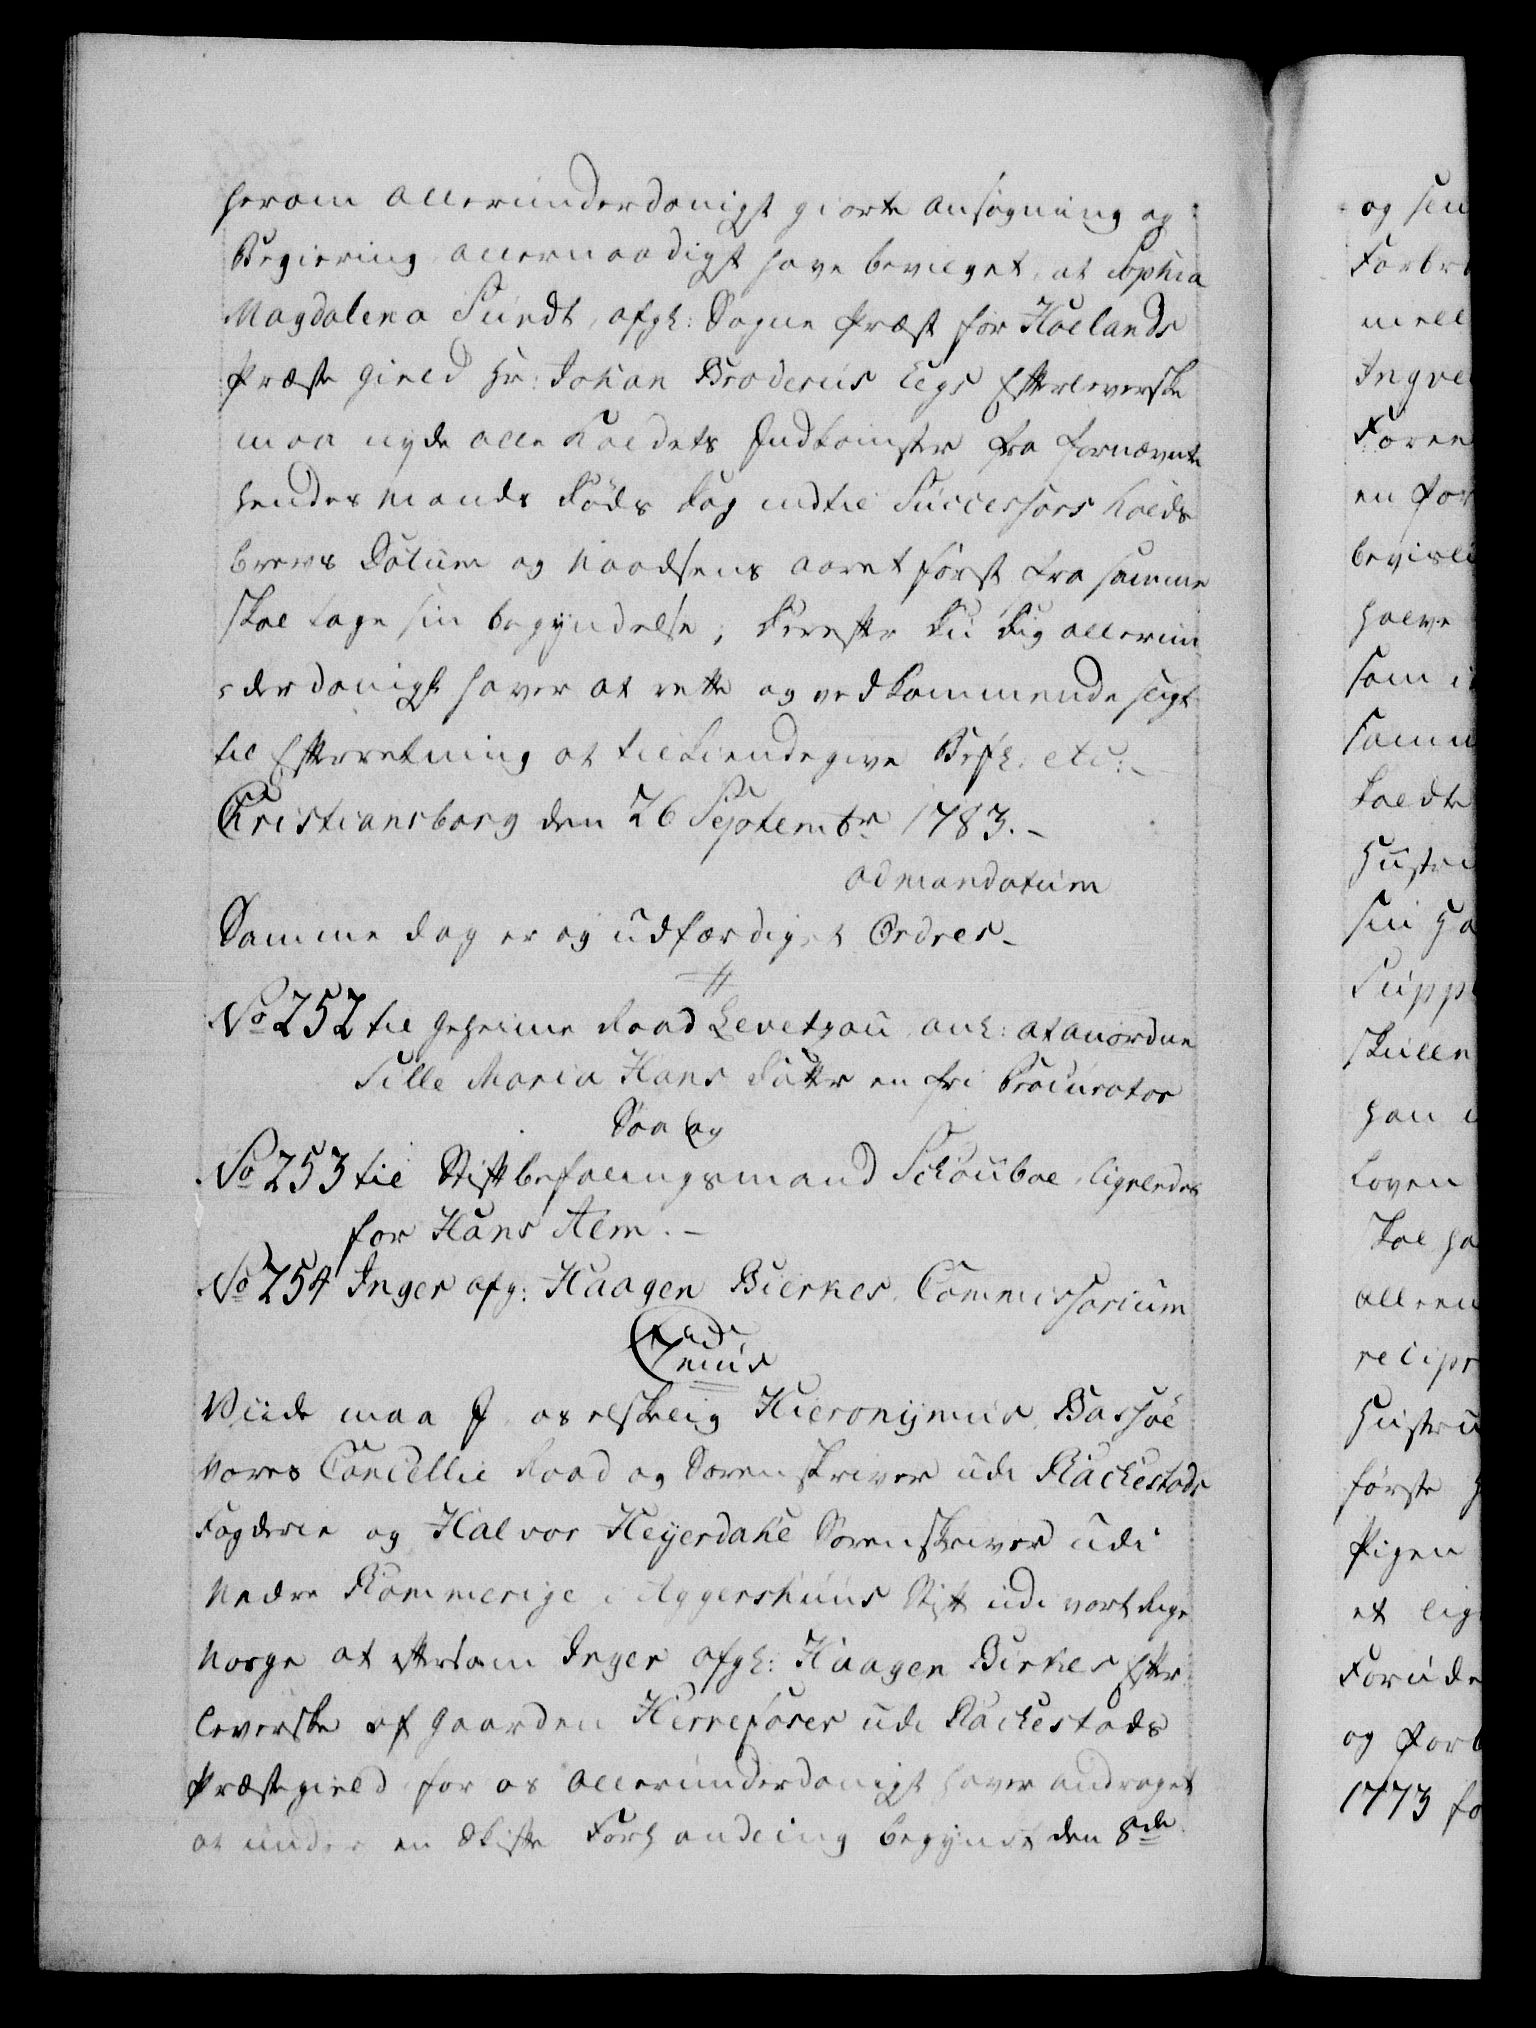 herom allerunderdanigst giorte ansøgning og
Begiering allernaadigst have bevilget, at Sophia
Magdalena Sundt, afgl: Sogne Præst for Hølands
Præste Gield Hr: Johan Broderus Eegs Efterleverske
maa nyde alle Kaldets Indkomster fra fornævnte
hendes Mands Døds Dag indtil Successors Kalds
brevs Datum og Naadsens aaret først fra samme
skal tage sin begyndelse; Derefter Du Dig allerun
derdanigst haver at rette og vedkommende sligt
til Efterretning at tilkiendegive Befl. etc:
Christiansborg den 26 Septembr 1783.
ad mandatum
Samme dag er og udfærdiget Ordres
No 252 til geheime Raad Levetzau anl: at anordne
Sille Maria Hans Datter en fri Procurator
Saa og
No 253 til Stiftbefalingsmand Schouboe, ligeledes
for Hans Alm.
No 254 Inger afg: Haagen Bierkes Commissorium
C 7mus
Viide maa I, os elskelig Hieronymus Bassøe
Vores Cancellie Raad og Sorenskriver udi Rackestads
Fogderie og Halvor Heyerdahl Sorenskriver udi
Nedre Rommerige i Aggershuus Stift udi vort Rige
Norge at eftersom Inger afgl: Haagen Birkes Efter
leverske af Gaarden Herrefoser udi Rackestads
Præstegield for os allerunderdanigst haver andraget
at under en Skifte Forhandling begyndt den 8de
og sin
Forbr
mell
Ingve
Foren
en for
bevisli
halve
som i
samm
kaldte
Hustr
sin Ha
Suppl
skulle
han
Loven
skal ha
alleen
recipr
Hustru
første
Pigen
et lig
Forude
og forb
1773 fo